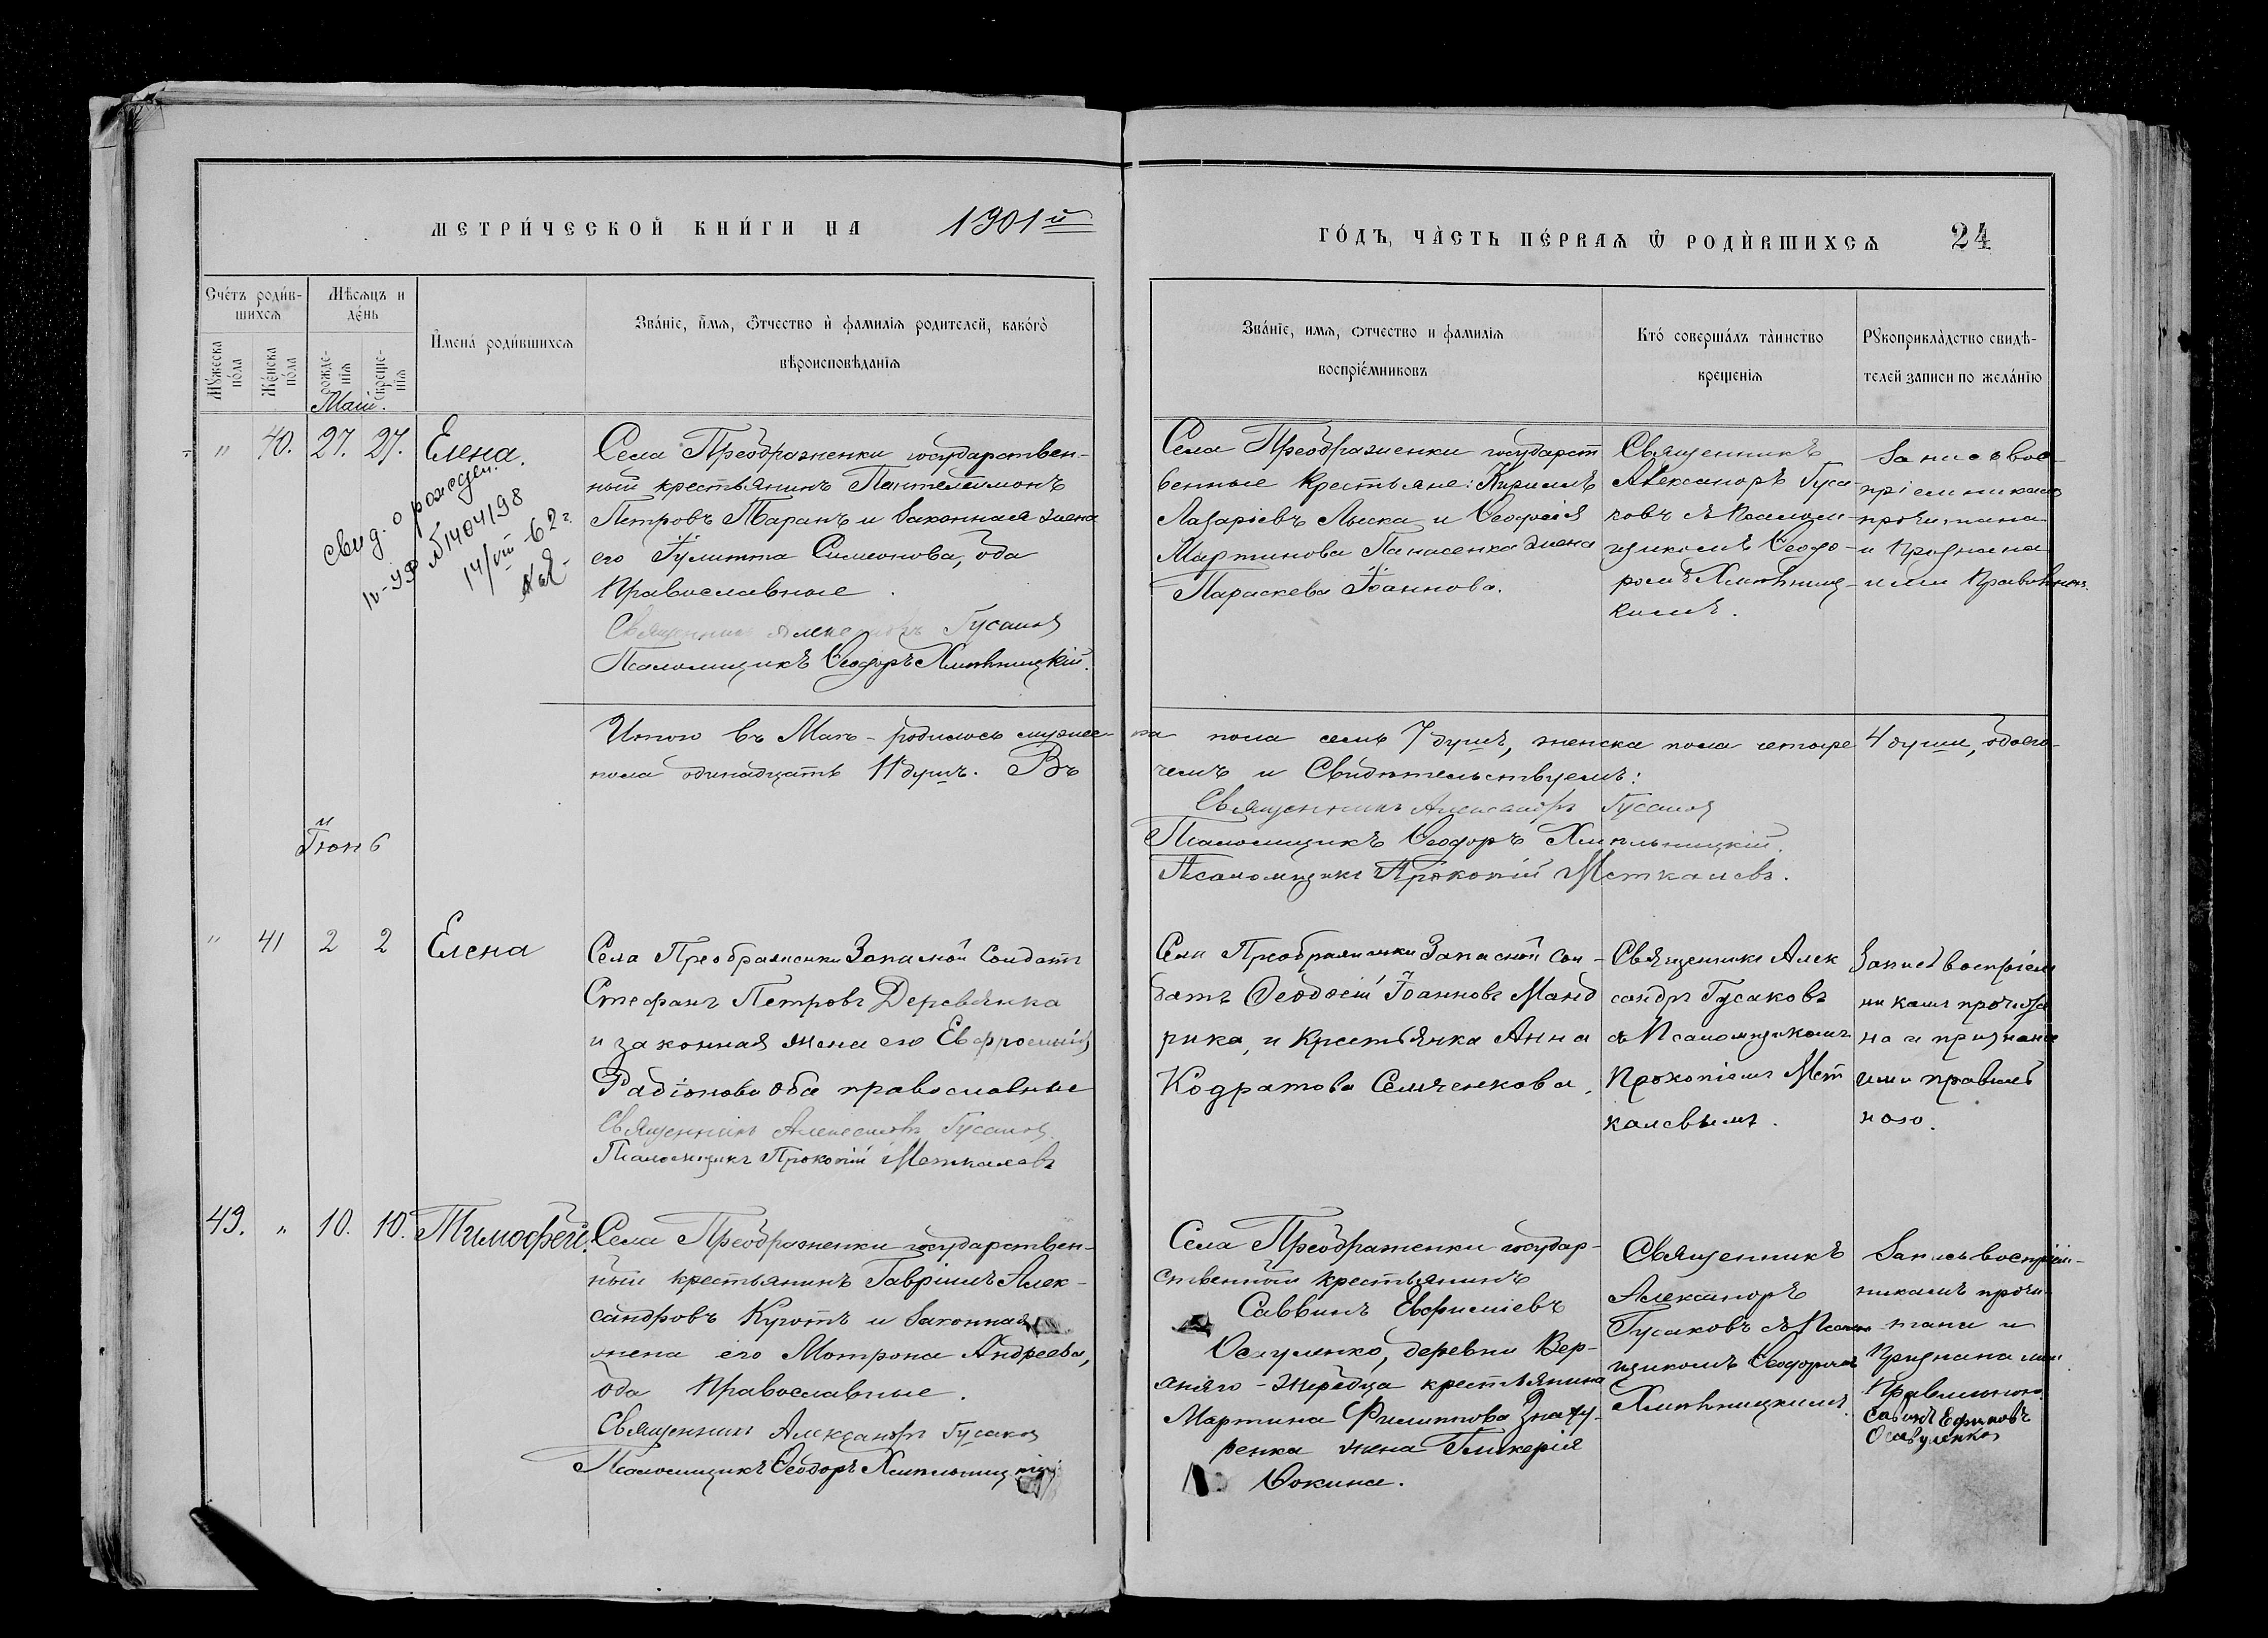 МЕТРИ́ЧЕСКОЙ КНИ́ГИ НА 1901й
ГО́ДЪ, ЧА̀СТЬ ПЕ́РВАѦ Ѿ РОДЍВШИХСѦ 24
Сче́тъ роди́в-
шихсѧ
Мѣ́сѧцъ и
де́нь
Мꙋ́жеска
по́ла
Же́нска
по́ла
рожде-
нїѧ
креще-
нїѧ
И҆мена̀ роди́вшихсѧ
Зва́нїе, и҆́мѧ, ѻ҆́тчество и҆ фамилїѧ родителей, како́гѡ
вѣроисповѣданїѧ
Зва́нїе, имѧ, ѻтчество и фамилїѧ
воспрїе́мниковъ
Кто́ соверша́лъ та̀инство
крещенїѧ
Рꙋкоприкла̀дство свидѣ-
телей записи по жела́нїю
Маій.
" 40. 27. 27. Елена.
Свид. о рожден.
IV-УР №1404198
14/VIII-62 г.
Села Преображенки государствен-
ный крестьянинъ Пантелеимонъ
Петровъ Таранъ и законная жена
его Іулитта Симеонова, оба
Православные.
Священникъ Александръ Гусаковъ
Псаломщикъ Ѳеодоръ Хмѣльницкій.
Села Преображенки государст
венные крестьяне: Кириллъ
Лазаріевъ Лыска и Ѳеодосія
Мартинова Панасенка жена
Параскева Іоаннова.
Священникъ
Александръ Гуса-
ковъ съ Псалом-
щикомъ Ѳеодо-
ромъ Хмѣльниц-
кимъ.
Запись вос-
пріемникамъ
прочитана
и Признана
ими Правильною.
Итого въ Маѣ - родилось мужес-ка пола семь 7 душъ, женска пола четыре 4 души, обоего
пола одинадцать 11 душъ. Въ чемъ и Свидѣтельствуемъ:
Священникъ Александръ Гусаковъ
Псаломщикъ Ѳеодоръ Хмѣльницкій.
Псаломщикъ Прокопій Меткалевъ.
Іюнь
" 41 2 2 Елена
Села Преображенки Запасной Солдатъ
Стефанъ Петровъ Деревянка
и законная жена его Евфросинія
Радіонова оба православные
Священникъ Александръ Гусаковъ.
Псаломщикъ Прокопій Меткалевъ
Села Преображенки Запасной Сол-
датъ Ѳеодосій Іоанновъ Манд
рика, и Крестьянка Анна
Кодратова Семченкова.
Священникъ Алек
сандръ Гусаковъ
съ Псаломщикомъ
Прокопіемъ Мет
калевымъ.
Запись воспріем
никамъ прочита
на и признана
ими правиль
ною.
49. " 10. 10. Тимофей.
Села Преображенки государствен-
ный крестьянинъ Гавріилъ Алек-
сандровъ Куготъ и законная
жена его Мотрона Андреева,
оба Православные.
Священникъ Александръ Гусаковъ
Псаломщикъ Ѳеодоръ Хмѣльницкій.
Села Преображенки государ-
ственный крестьянинъ
Саввинъ Евфиміевъ
Осауленко, деревни Вер-
аняго-Жеребца крестьянина
Мартина Филиппова Знагу-
ренка жена Гликерія
Ѳокина.
Священникъ
Александръ
Гусаковъ съ Псалом-
щикомъ Ѳеодоромъ
Хмѣльницкимъ.
Запись воспріем-
никамъ прочи-
тана и
Признана ими
Правильною
Савинъ Ефимовъ
Осавуленко